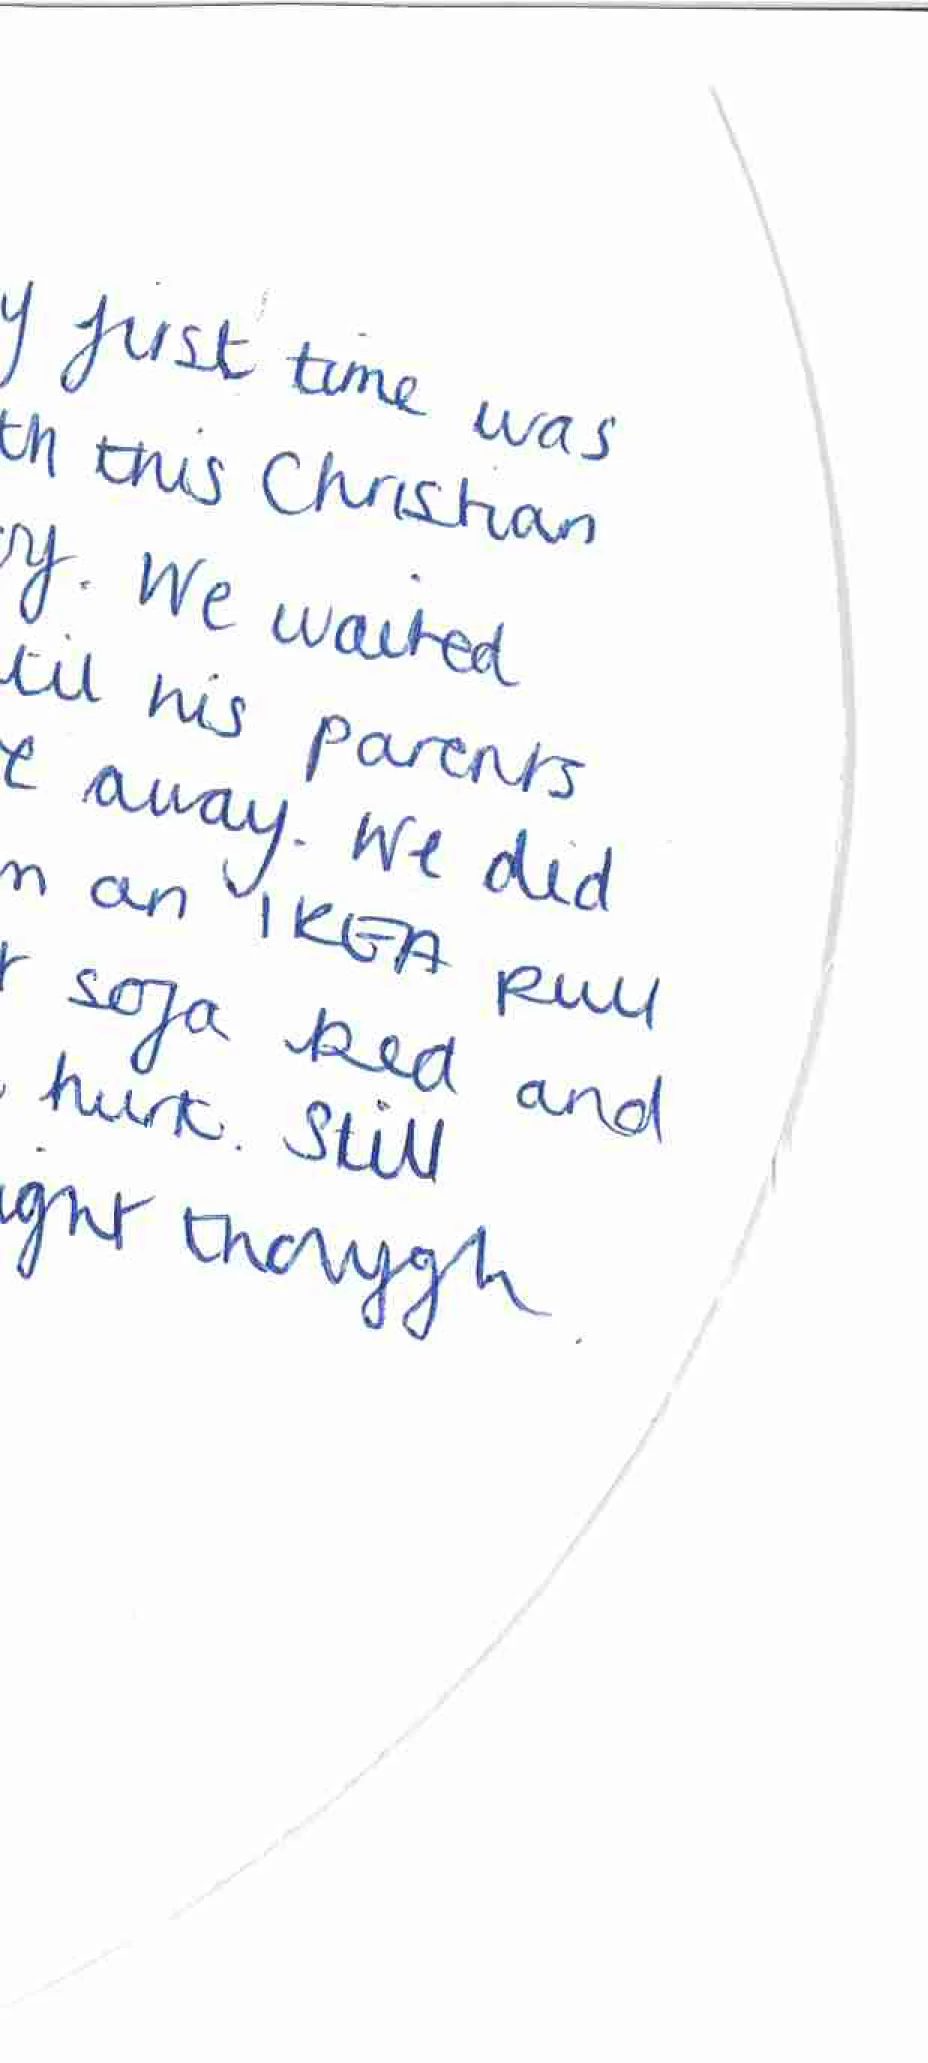 y first time was
th this Christian
oy. We waited
til his parents
e away. We did
n an IKEA pull
t sofa bed and
hurt. Still
ight thouygh.